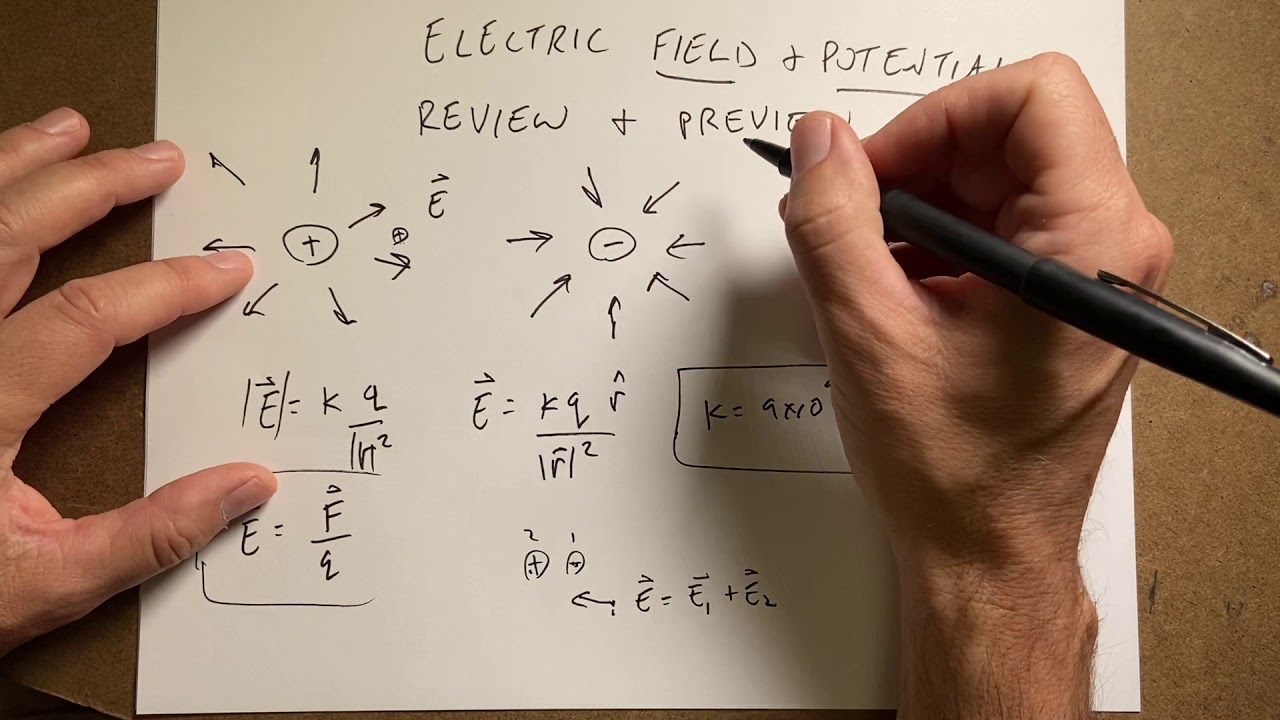 ELECTRIC FIELD + POTENTIAL
REVIEW + PREVIEW
+
E⃗
+
-
|E⃗| = k q / |r⃗|²
E⃗ = kq / |r⃗|² r̂
k = 9x10
E = F⃗ / q
2 1
+ -
E⃗ = E⃗₁ + E⃗₂